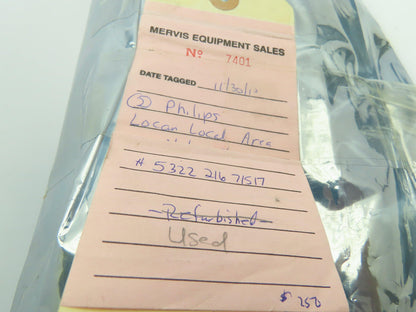 MERVIS EQUIPMENT SALES
No 7401
DATE TAGGED 11/30/12
5 Philips
Locan Local Area
" " "
# 5322 216 71517
Refurbished
Used
$ 250